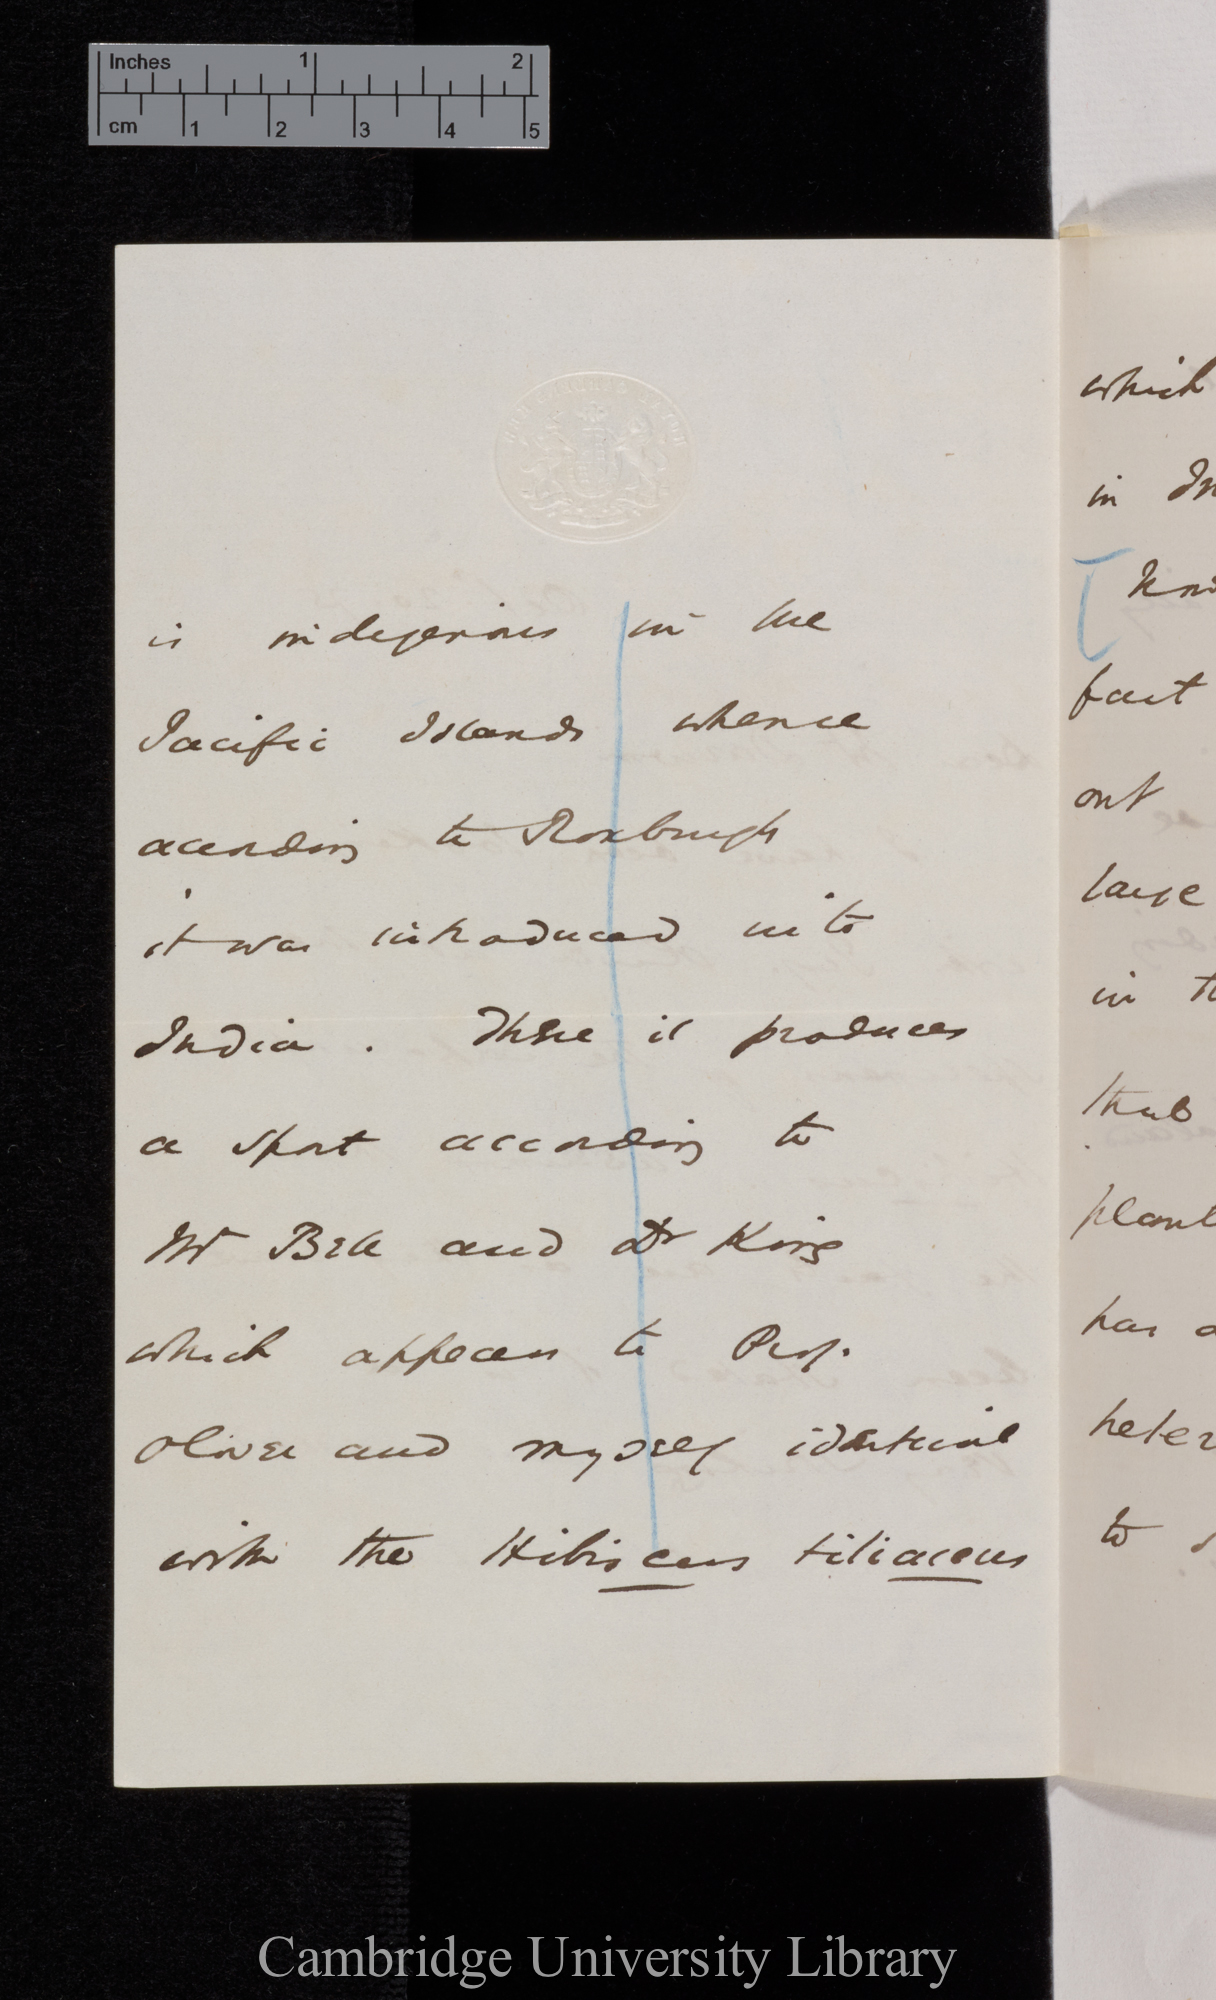 Inches 1 2
cm 1 2 3 4 5
is indigenous in the
Pacific Islands whence
according to Roxburgh
it was introduced into
India. There it produces
a sport according to
Mr Bell and Dr King
which appears to Prof.
Oliver and myself identical
with the Hibiscus tiliaceus
which
in In
kno
fact
out
large
in th
that
plant
has a
heter
to
Cambridge University Library